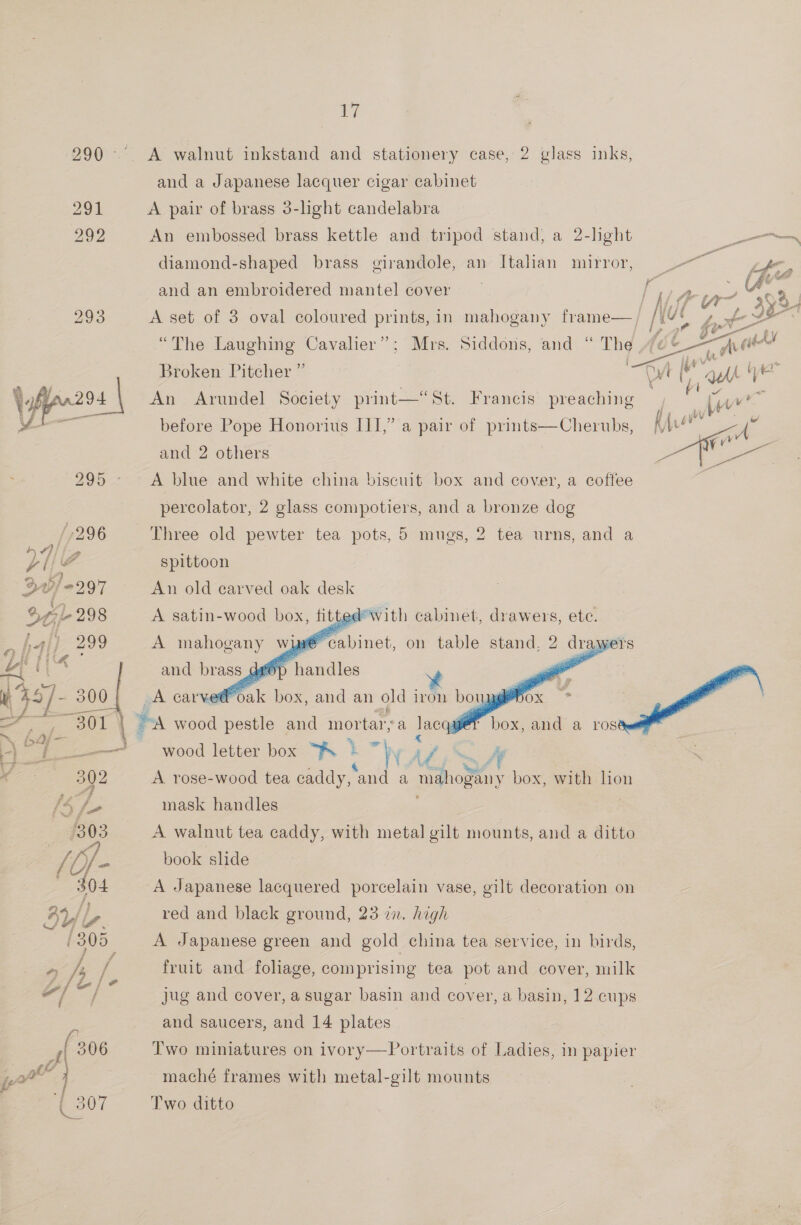 17
290 A walnut inkstand and stationery case, 2 glass inks,
and a Japanese lacquer cigar cabinet
291 A pair of brass 3-light candelabra
292 An embossed brass kettle and tripod stand, a 2-light
diamond-shaped brass girandole, an Italian mirror,
and an embroidered mantel cover
293 A set of 3 oval coloured prints, in mahogany frame—
“The Laughing Cavalier”; Mrs. Siddons, and “The
Broken Pitcher”
294 An Arundel Society print—“St. Francis preaching
before Pope Honorius III,” a pair of prints—Cherubs,
and 2 others
295 A blue and white china biscuit box and cover, a coffee
percolator, 2 glass compotiers, and a bronze dog
296 Three old pewter tea pots, 5 mugs, 2 tea urns, and a
spittoon
297 An old carved oak desk
298 A satin-wood box, fitted with cabinet, drawers, etc.
299 A mahogany wine cabinet, on table stand, 2 drawers
and brass drop handles
300 A carved oak box, and an old iron bound box
301 A wood pestle and mortar, a lacquer box, and a rose-
wood letter box
302 A rose-wood tea caddy, and a mahogany box, with lion
mask handles
303 A walnut tea caddy, with metal gilt mounts, and a ditto
book slide
10/-
304 A Japanese lacquered porcelain vase, gilt decoration on
red and black ground, 23 in. high
305 A Japanese green and gold china tea service, in birds,
fruit and foliage, comprising tea pot and cover, milk
jug and cover, a sugar basin and cover, a basin, 12 cups
and saucers, and 14 plates
306 Two miniatures on ivory—Portraits of Ladies, in papier
maché frames with metal-gilt mounts
307 Two ditto